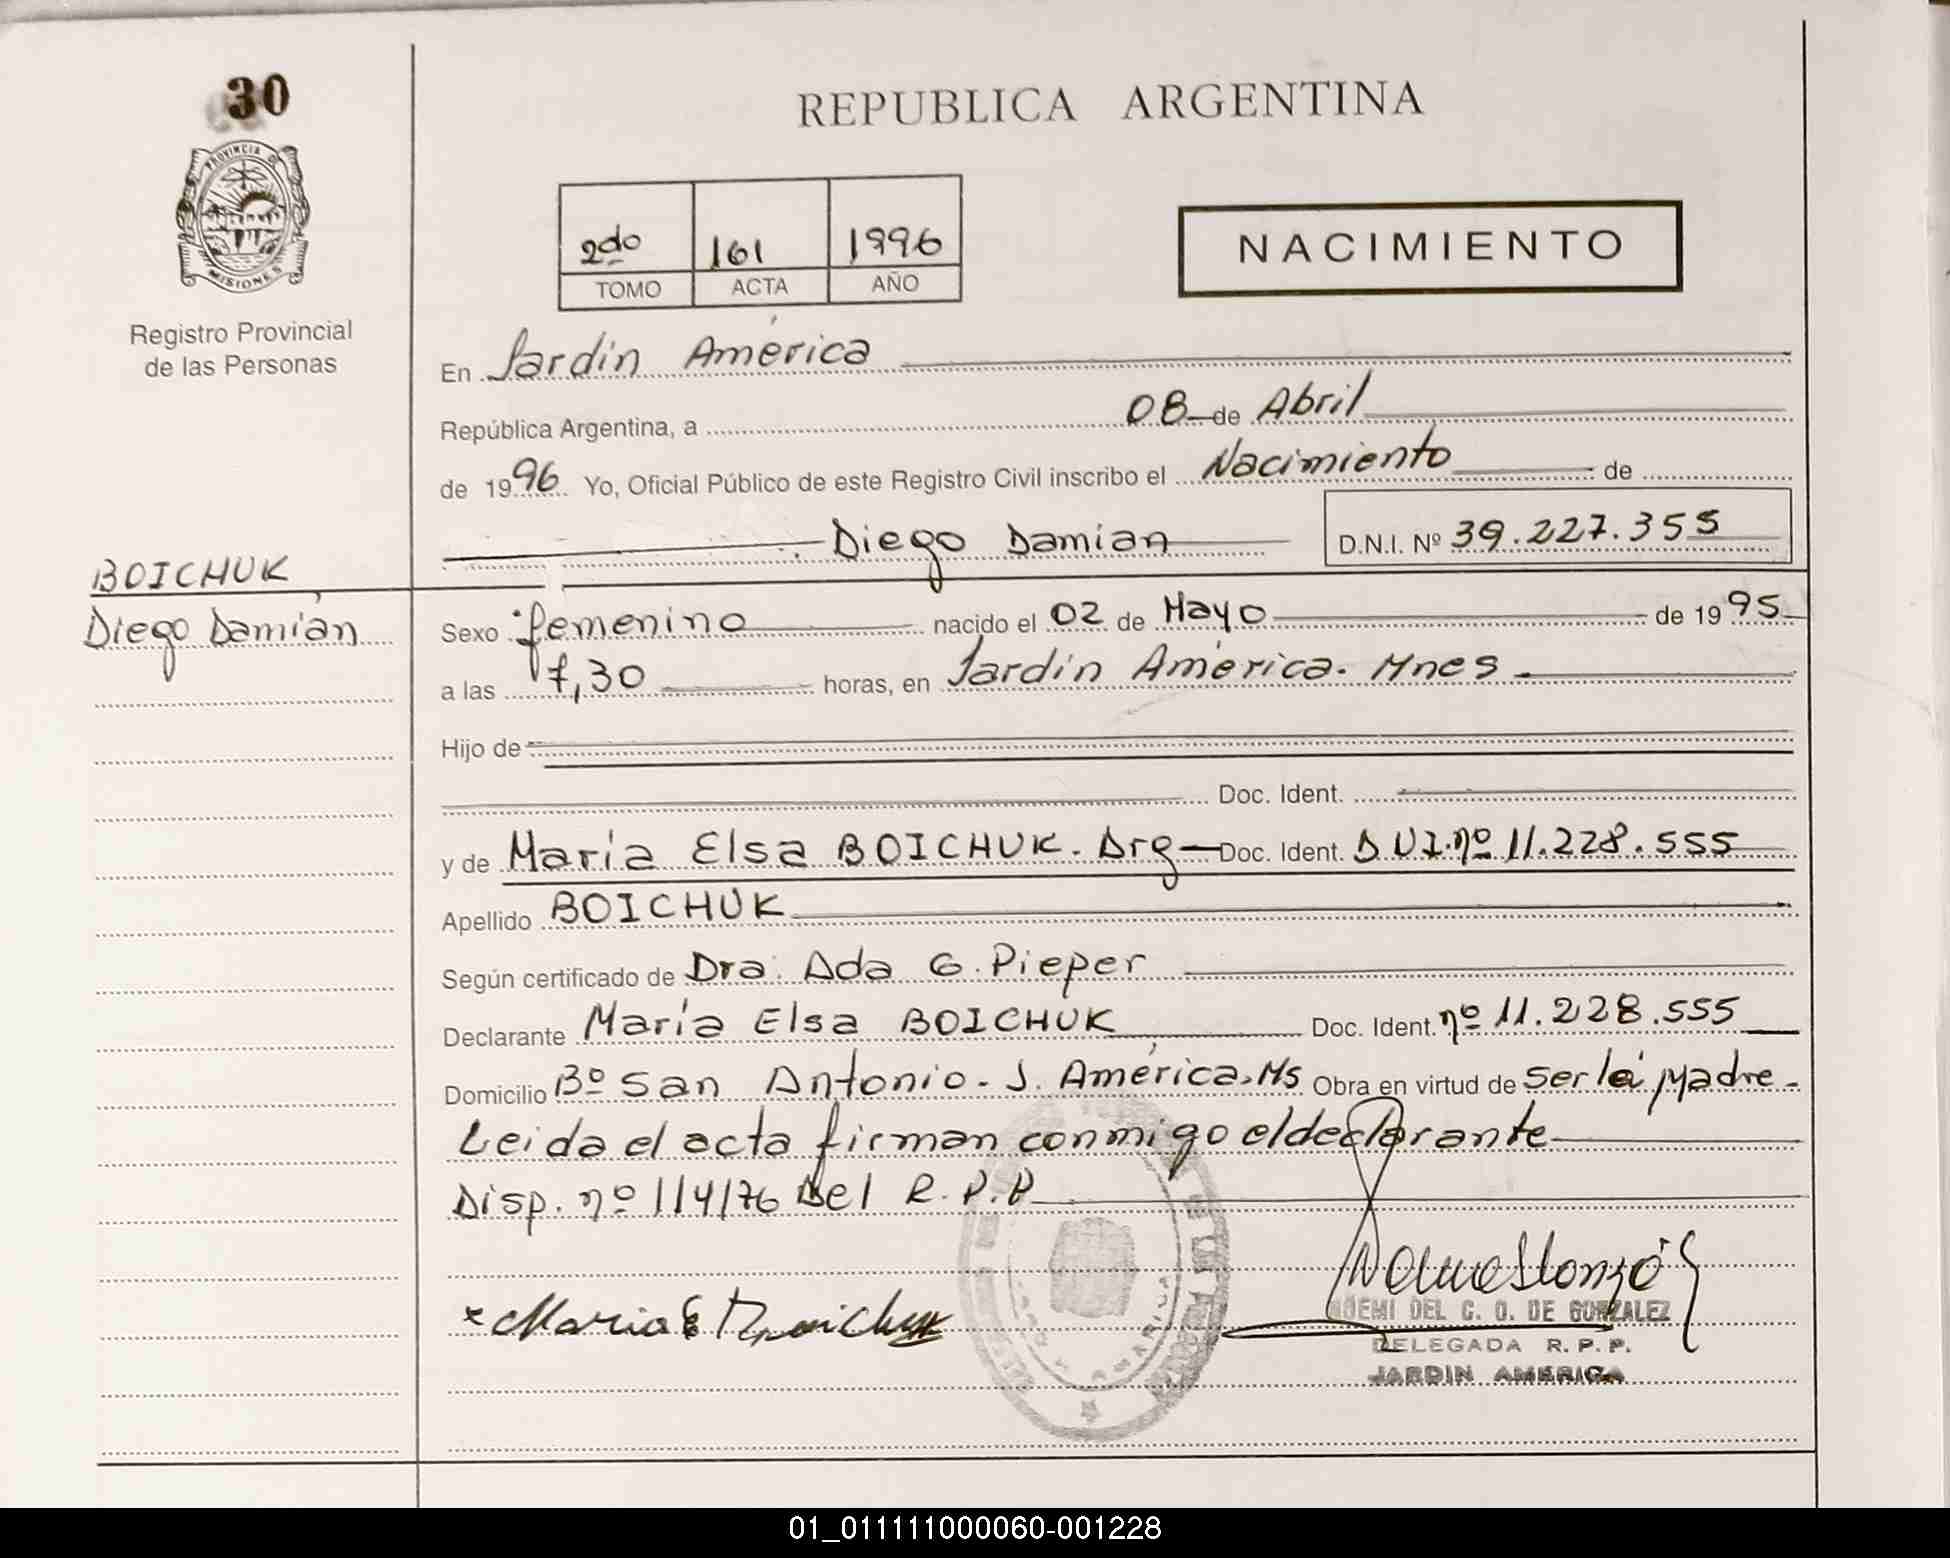 30
PROVINCIA D
MISIONES
Registro Provincial
de las Personas
REPUBLICA ARGENTINA
2do 161 1996
TOMO ACTA AÑO
NACIMIENTO
En Jardín América
República Argentina, a 08 de Abril
de 1996 Yo, Oficial Público de este Registro Civil inscribo el Nacimiento de
Diego Damián D.N.I. Nº 39.227.355
BOICHUK
Diego Damián
Sexo femenino nacido el 02 de Mayo de 1995
a las 7,30 horas, en Jardín América. Mnes
Hijo de
Doc. Ident.
y de María Elsa BOICHUK. Arg Doc. Ident. D U I. nº 11.228.555
Apellido BOICHUK
Según certificado de Dra. Ada G. Pieper
Declarante María Elsa BOICHUK Doc. Ident. nº 11.228.555
Domicilio Bº San Antonio. J. América. Ms Obra en virtud de ser la Madre.
Leida el acta firman conmigo el declarante
Disp. nº 114/76 del R.P.P
x Maria E
NOEMI DEL C. O. DE GONZALEZ
DELEGADA R.P.P.
JARDIN AMERICA
01_011111000060-001228